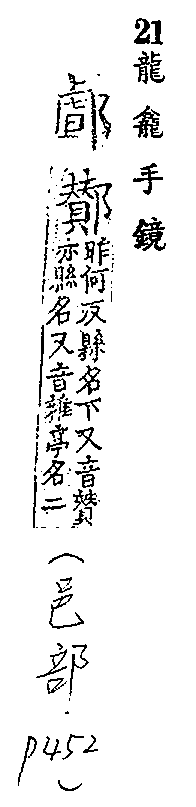 21 龍龕手鏡
䣜 酇
昨何反縣名下又音賛
亦縣名又音雜亭名二
(邑部
p452)